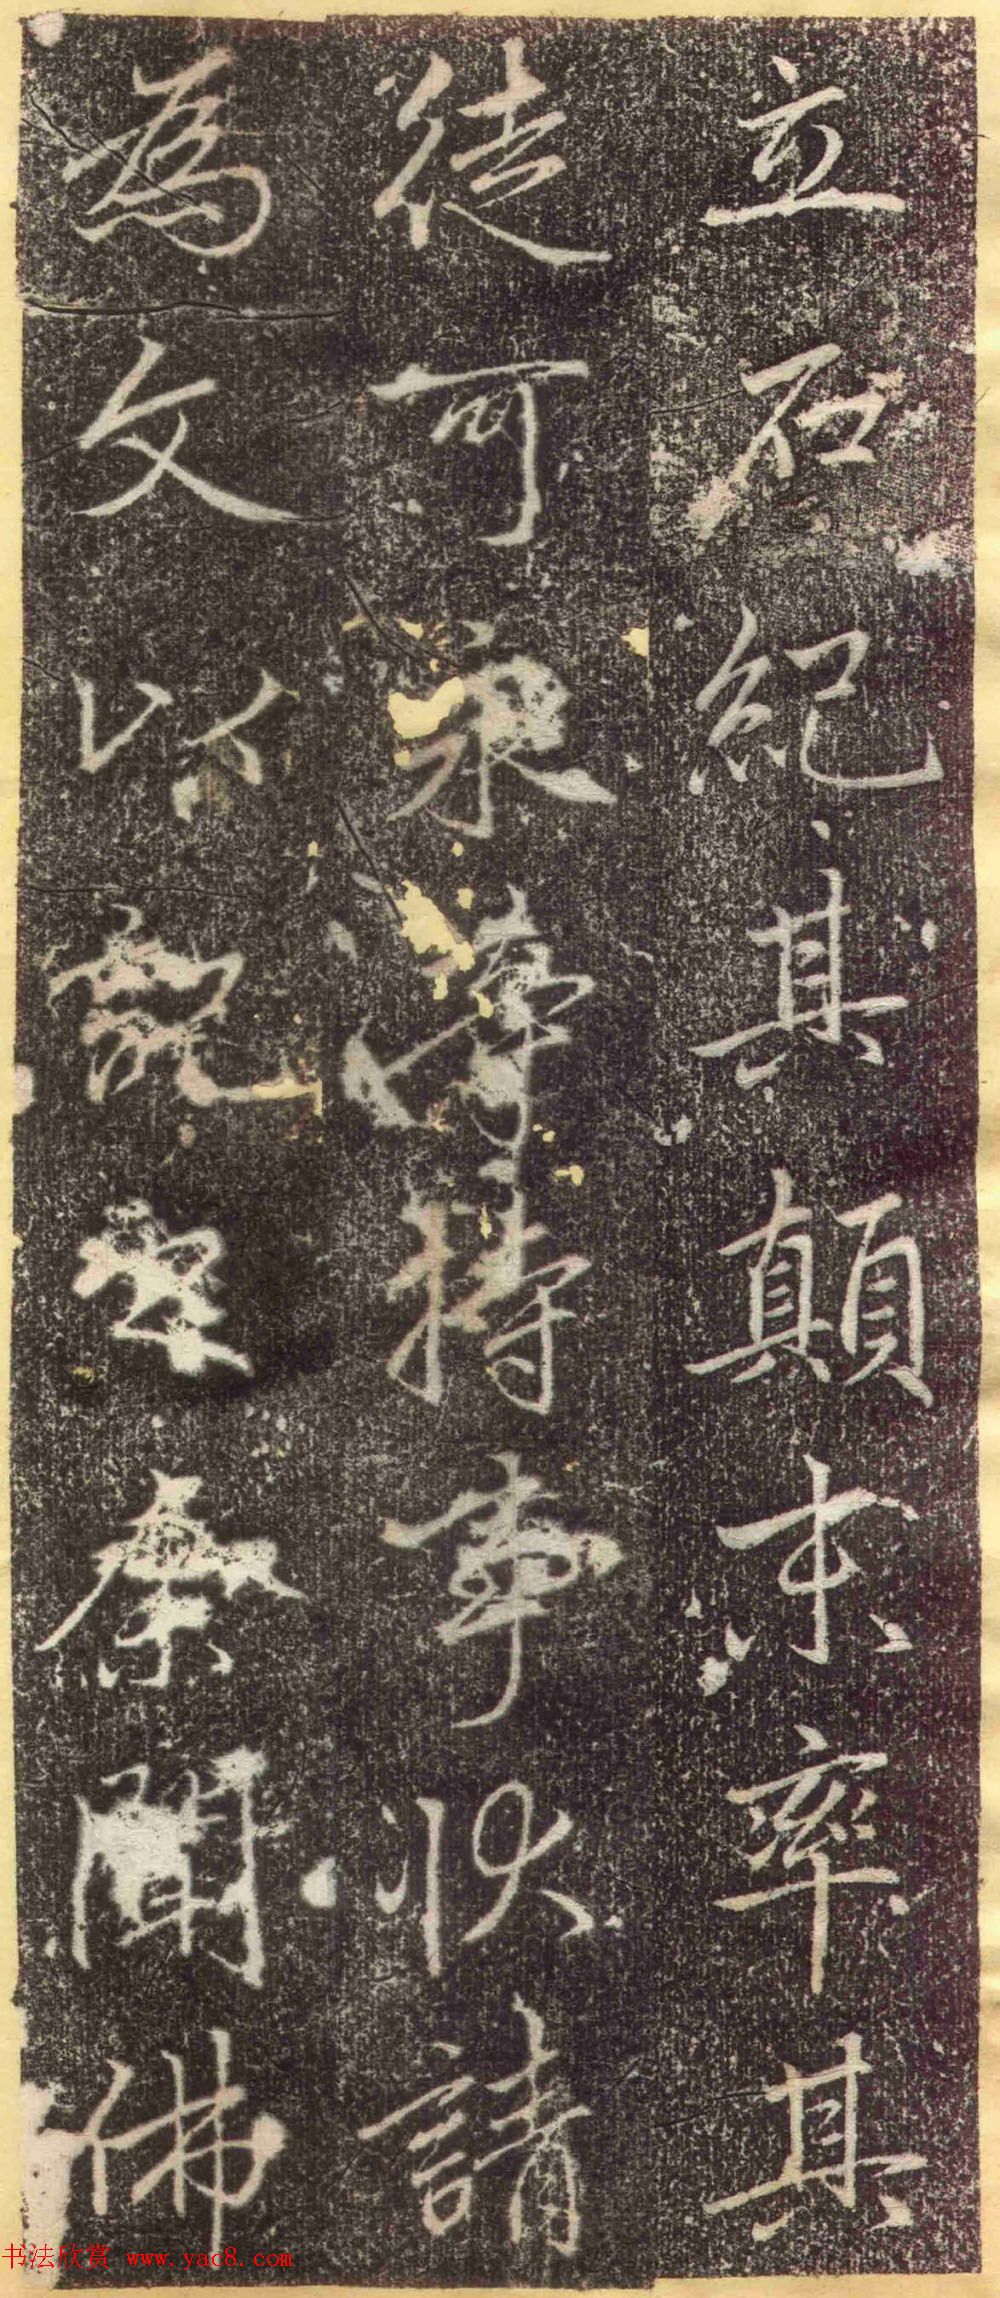 立石紀其顛末率其
徒可持事狀請
為文以聞佛
书法欣赏 www.yac8.com